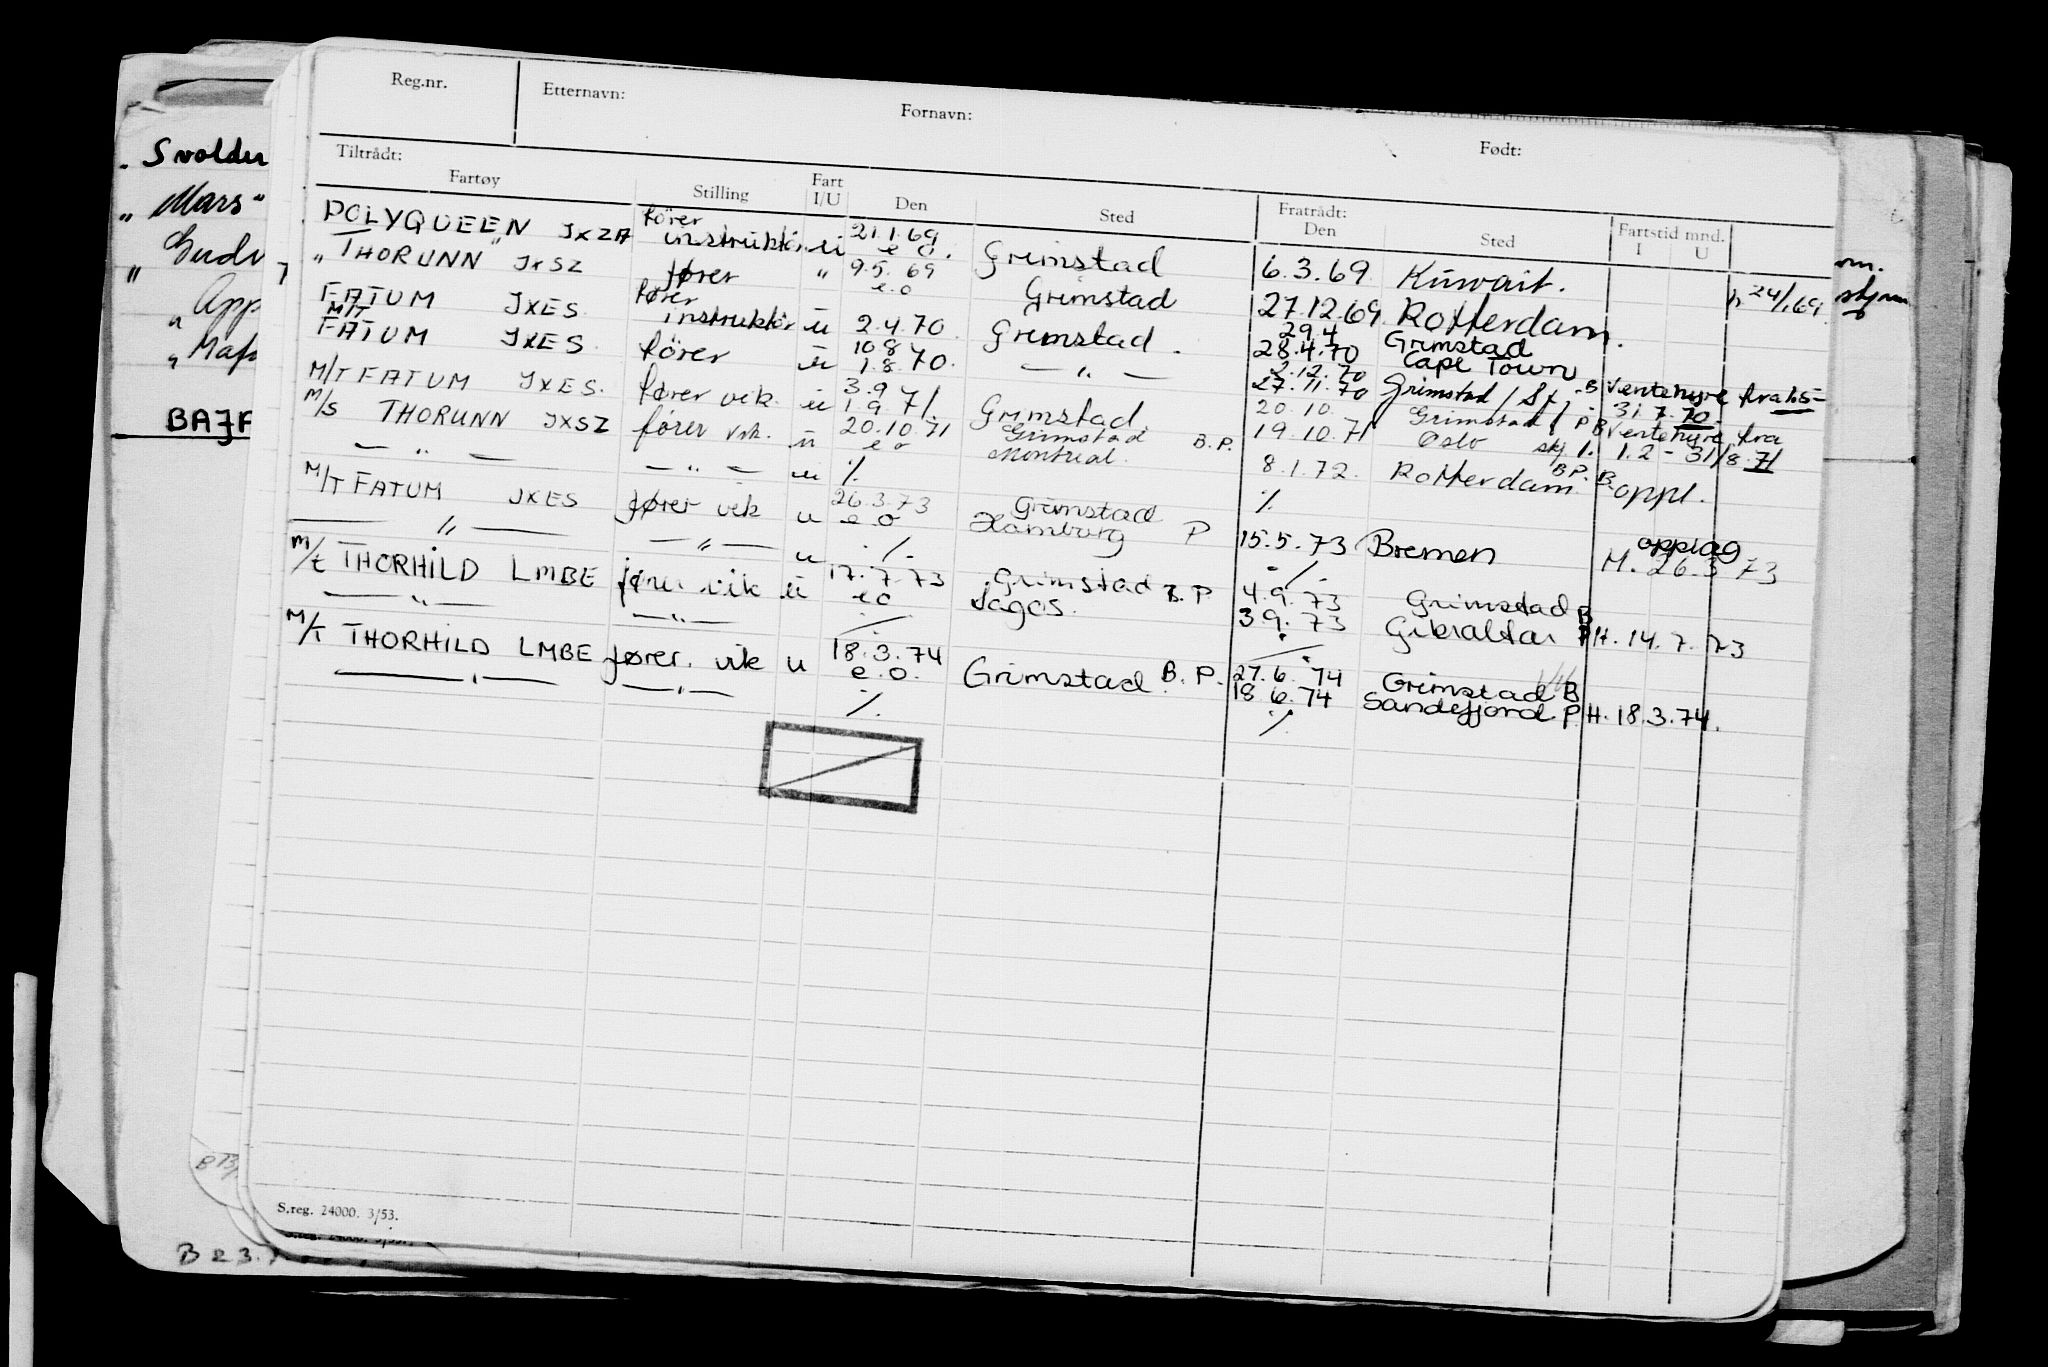 Reg.nr. Etternavn: Fornavn: Født:
Tiltrådt: Fratrådt:
Fartøy Stilling Fart I/U Den Sted Den Sted Fartstid mnd. I U
POLYQUEEN JXZA fører instruktör u 21.1.69 e o. Grimstad 6.3.69 Kuwait. 24/1.69.
" THORUNN " JXSZ fører " 9.5.69 e.o Grimstad 27.12.69 Rotterdam.
FATUM JXES. fører instruktör u 2.4.70 Grimstad. 29.4 28.4.70 Grimstad Cape Town
M/T FATUM JXES fører u 10 8 1.8.70. — " — 2.12.70 27.11.70 Grimstad / B Ventehyre fra 31.7.70
M/T FATUM JXES. fører vik. u 3.9 1.9.71. Grimstad 20.10. 19.10.71 Grimstad / Oslo B Ventehyre fra 1.2 - 31/8.71
M/S THORUNN JXSZ fører vik. u 20.10.71 e o Grimstad Montreal. B.P. 8.1.72. Rotterdam. BP. B. oppl.
— " — — " — u ./. ./.
M/T FATUM JXES fører vik u 26.3.73 e o Grimstad Hamburg P 15.5.73 Bremen opplag M. 26.3 73
— " — — " — u ./. ./.
M/t THORHILD LMBE fører vik u 17.7.73 eo Grimstad Lagos. B.P 4.9.73 3.9.73 Grimstad B Gibraltar P H. 14.7.73
— " — — " — ./. ./.
M/T THORHILD LMBE fører. vik u 18.3.74 e.o. Grimstad B.P. 27.6.74 18.6.74 Grimstad B Sandefjord P H. 18.3.74.
— " — — " — ./. ./.
S.reg. 24000. 3/53.
Svolder
" Mars "
" Gudv
" App
" Maf
BAJF
B 23.